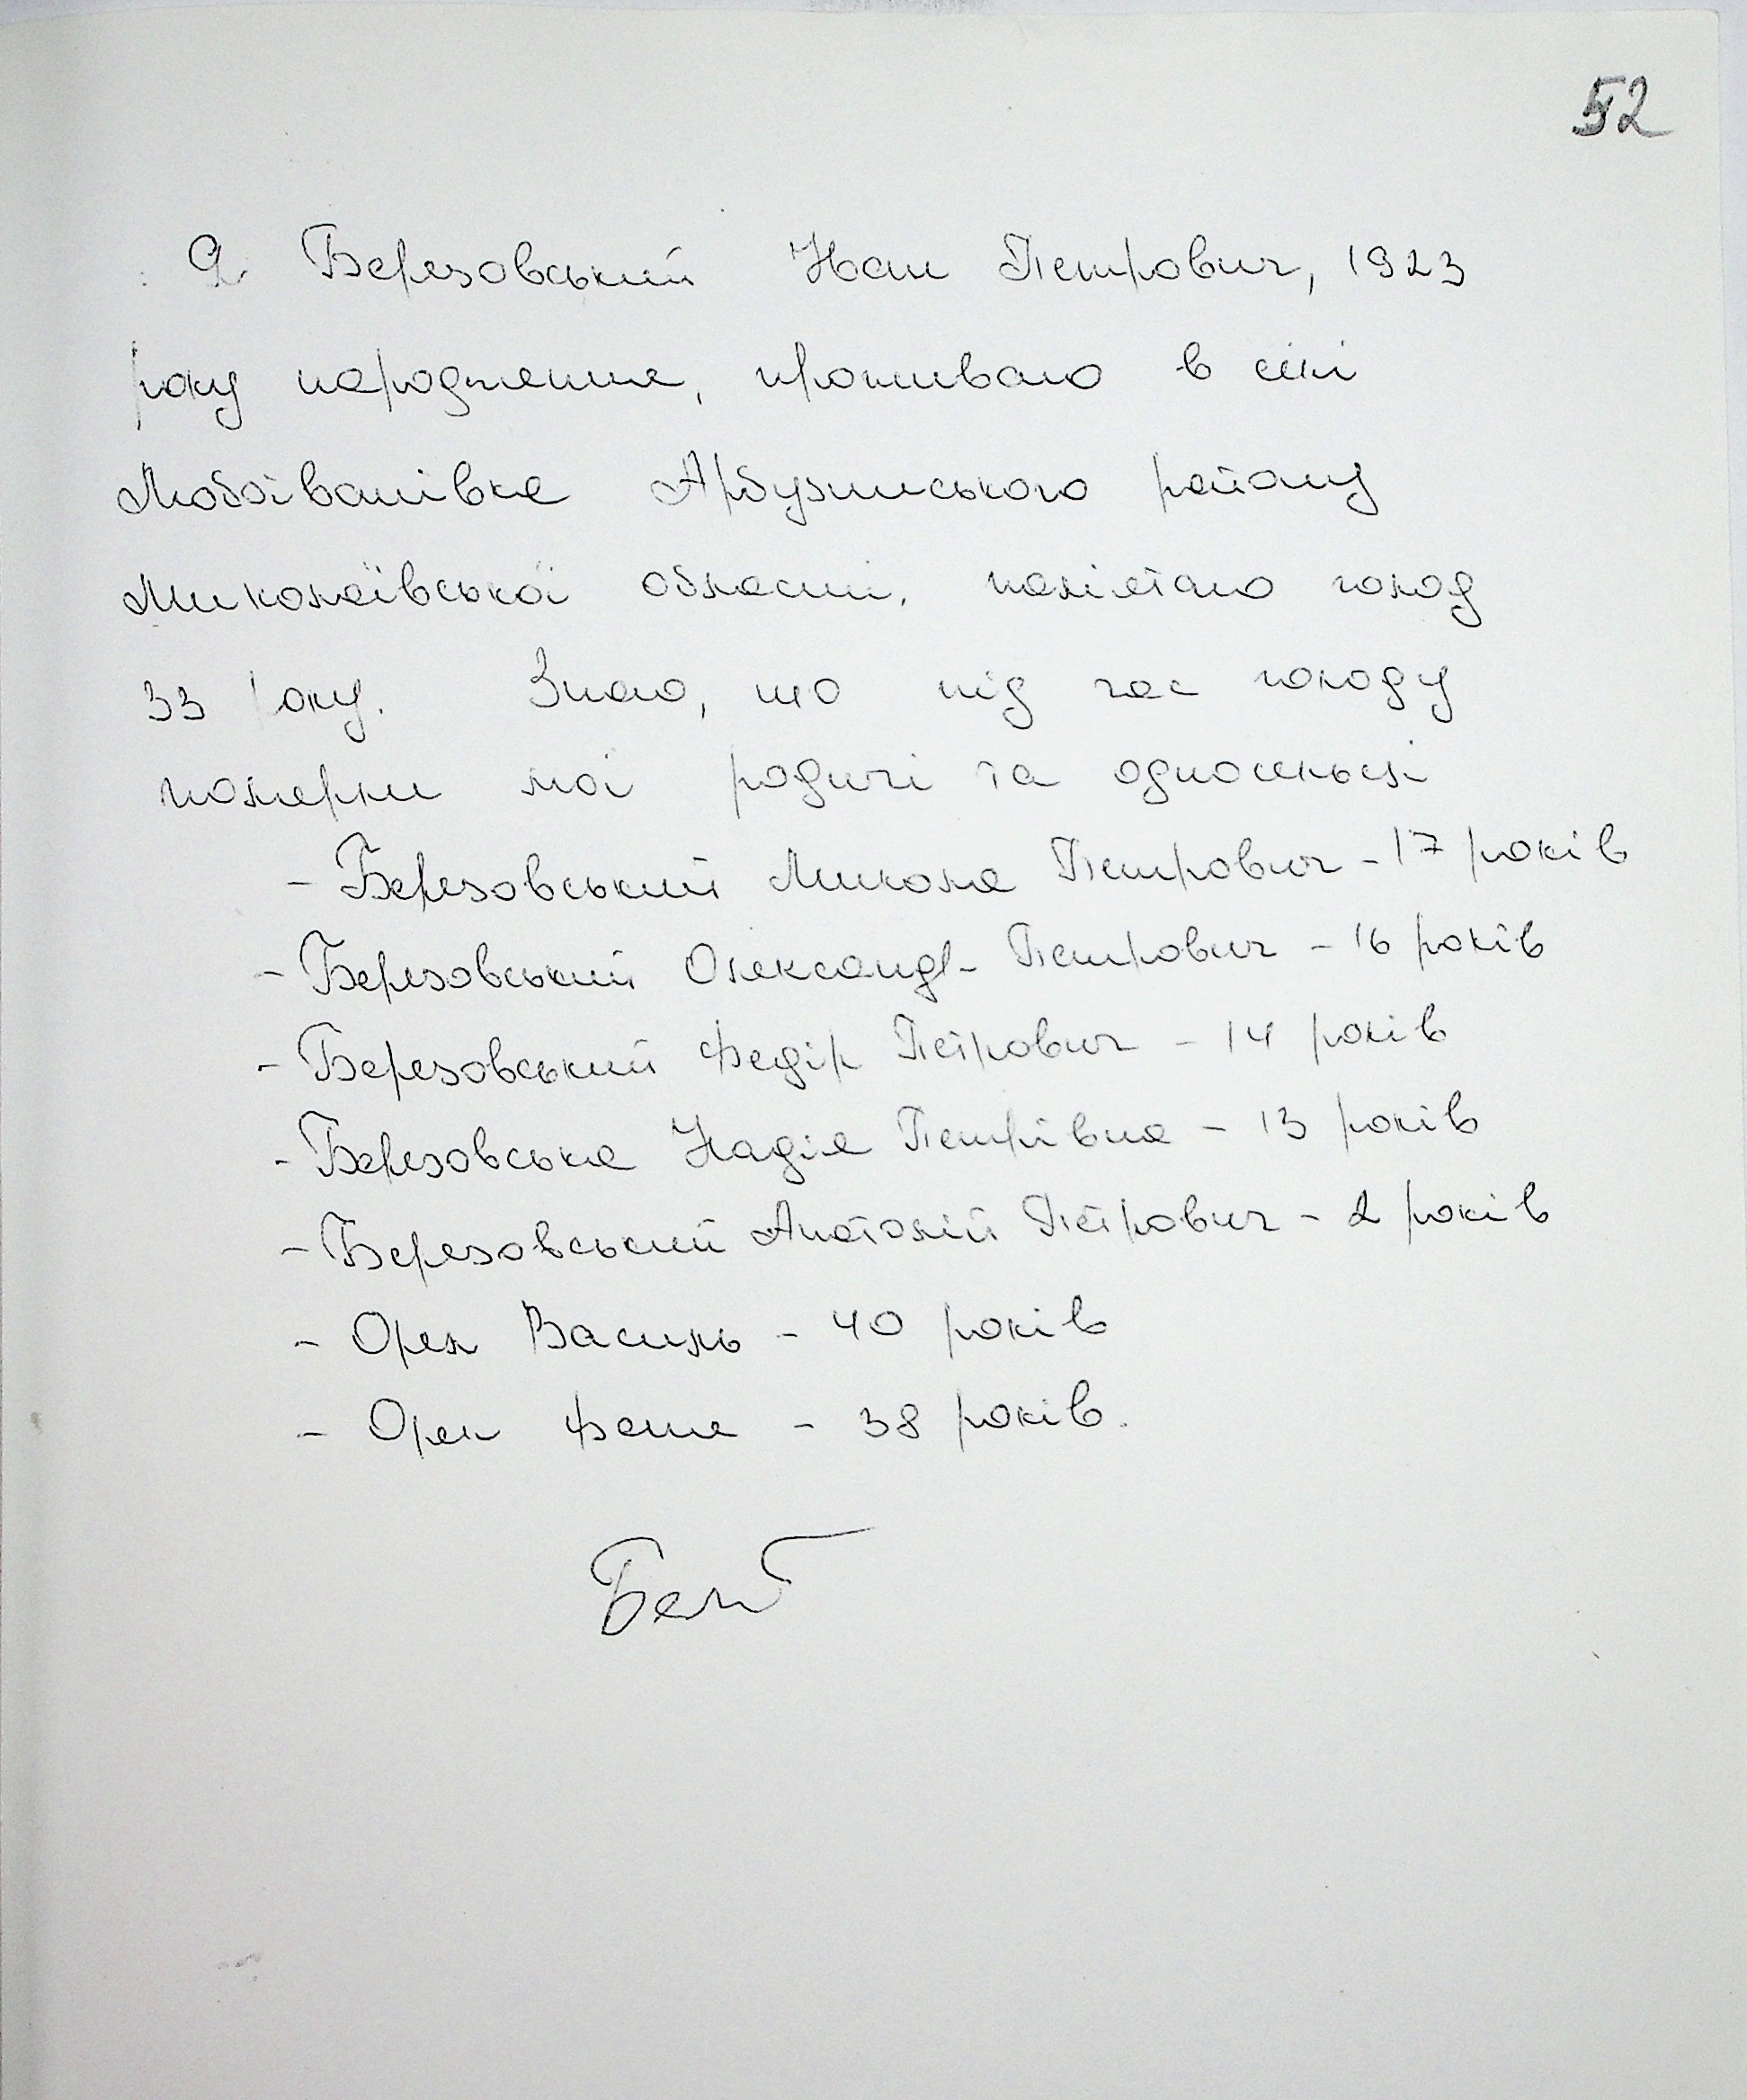 52
Я Березовський Іван Петрович, 1923
року народження, проживаю в селі
Любоіванівка Арбузинського району
Миколаївської області, пам'ятаю голод
33 року. Знаю, що під час голоду
померли мої родичі та односельці
- Березовський Микола Петрович - 17 років
- Березовський Олександр Петрович - 16 років
- Березовський Федір Петрович - 14 років
- Березовська Надія Петрівна - 13 років
- Березовський Анатолій Петрович - 2 років
- Орел Василь - 40 років
- Орел Фаня - 38 років.